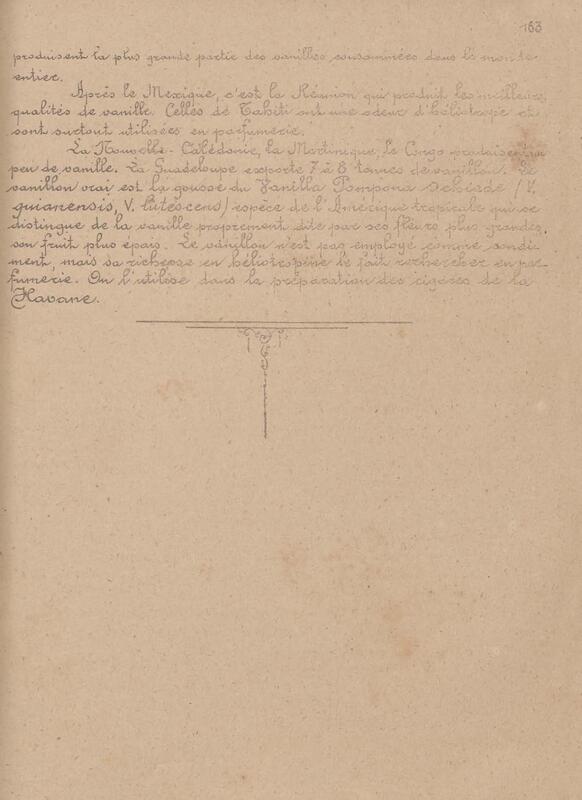 163
produisent la plus grande partie des vanilles consommées dans le monde
entier.
Après le Mexique, c'est la Réunion qui produit les meilleures
qualités de vanille. Celles de Tahiti ont une odeur d'héliotrope et
sont surtout utilisées en parfumerie.
La Nouvelle-Calédonie, la Martinique, le Congo produisent un
peu de vanille. La Guadeloupe exporte 7 à 8 tonnes de vanillon. Le
vanillon vrai est la gousse du Vanilla Pompona Schiede (V.
guianensis, V. lutescens) espèce de l'Amérique tropicale qui se
distingue de la vanille proprement dite par ses fleurs plus grandes,
son fruit plus épais. Le vanillon n'est pas employé comme condi-
ment, mais sa richesse en héliotropine le fait rechercher en par-
fumerie. On l'utilise dans la préparation des cigares de la
Havane.